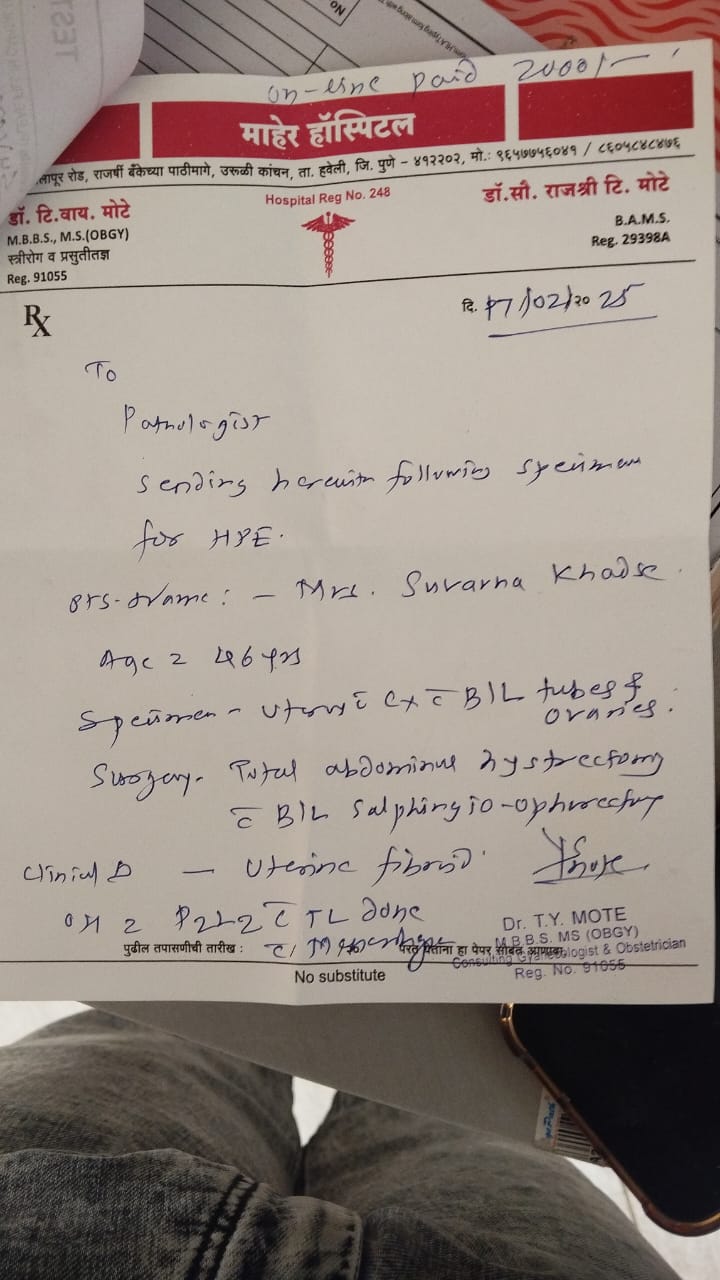 TEST
No
on-line paid 2000/-
माहेर हॉस्पिटल
लापूर रोड, राजर्षी बँकेच्या पाठीमागे, उरूळी कांचन, ता. हवेली, जि. पुणे - ४१२२०२, मो.: ९६५७७५६०४१ / ८६०५४८४८७६
डॉ. टि.वाय. मोटे
M.B.B.S., M.S.(OBGY)
स्त्रीरोग व प्रसुतीतज्ञ
Reg. 91055
Hospital Reg No. 248
डॉ.सौ. राजश्री टि. मोटे
B.A.M.S.
Reg. 29398A
Rx
दि. 17/02/२० 25
To
Pathologist
Sending herewith following specimen
for HPE.
Pts-Name: - Mrs. Suvarna Khadse
Age = 46 yrs
Specimen - Uterus c̄ Cx c̄ B/L tubes &
ovaries.
Surgery - Total abdominal hystrectomy
c̄ B/L Salphingio-ophorectomy
Clinical D - Uterine fibroid.
= P2L2 c̄ TL done
पुढील तपासणीची तारीख :
परत येताना हा पेपर सोबत आणावा
Dr. T.Y. MOTE
M.B.B.S. MS (OBGY)
Consulting Gynecologist & Obstetrician
Reg. No. 91055
No substitute